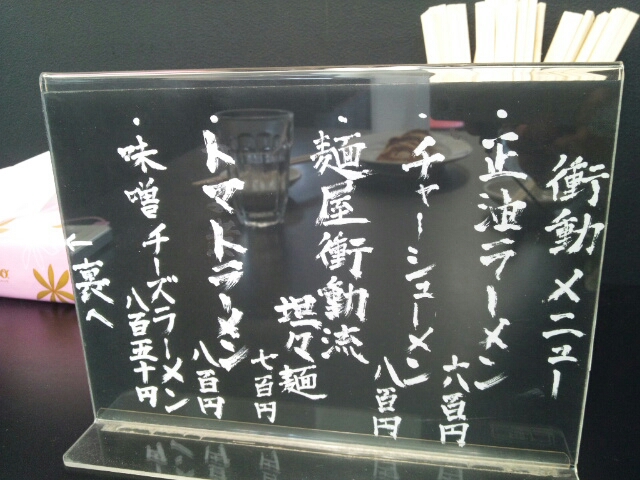 衝動メニュー
・正油ラーメン 六百円
・チャーシューメン 八百円
・麺屋衝動流
坦々麺 七百円
・トマトラーメン 八百円
・味噌チーズラーメン 八百五十円
←裏へ